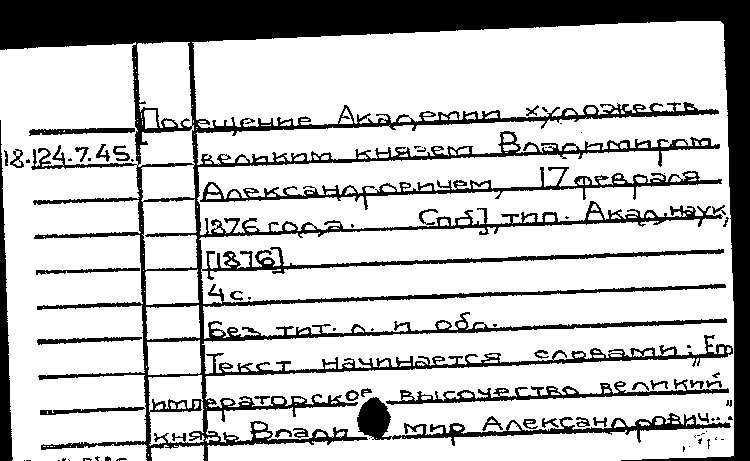 [Посещение Академии художеств
18.124.7.45. великим князем Владимиром
Александровичем, 17 февраля
1876 года. Спб.], тип. Акад. наук,
[1876].
4 с.
Без тит. л. и обл.
Текст начинается словами: „Его
императорское высочество великий
князь Влади мир Александрович..."